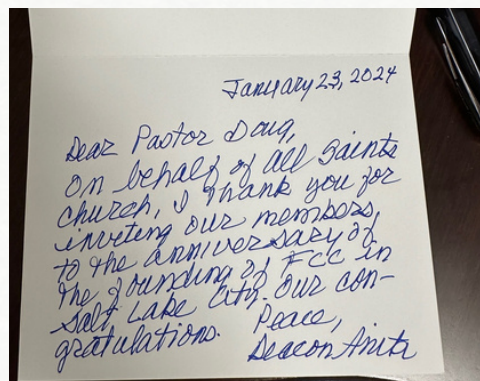 January 23, 2024
Dear Pastor Doug,
On behalf of all Saints
church, I thank you for
inviting our members,
to the anniversary of
the founding of FCC in
Salt Lake City. Our con-
gratulations.
Peace,
Deacon Anita